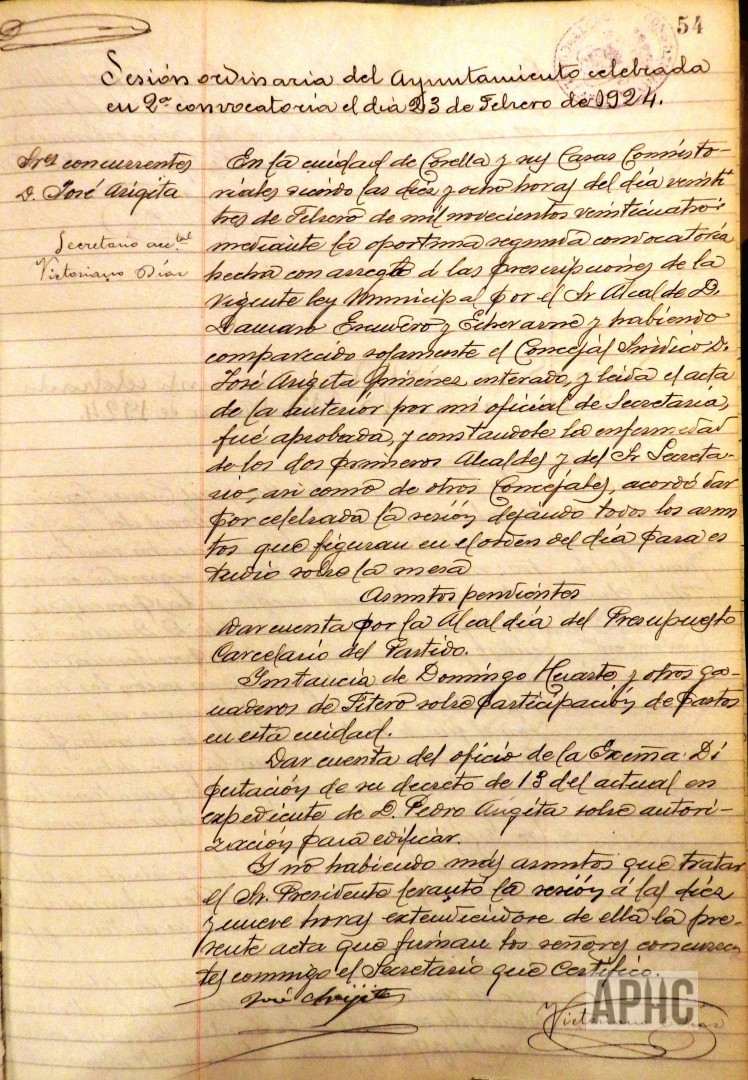 54
Sesión ordinaria del Ayuntamiento celebrada
en 2ª convocatoria el día 23 de Febrero de 1924.
Sres concurrentes
D. José Arigita
Secretario acc.tal
Victoriano Días
En la cuidad de Corella y sus Casas Consisto-
riales siendo las diez y ocho horas del día veinti
tres de Febrero de mil novecientos veinticuatro:
mediante la oportuna segunda convocatoria
hecha con arreglo á las prescripciones de la
vigente ley Municipal por el Sr Alcalde D.
Damaso Escudero y Echevarne y habiendo
comparecido solamente el Concejál Síndico D.
José Arigita Jiménez, enterado, y leida el acta
de la anteriór por mi oficial de Secretaría,
fué aprobada, y constandole la enfermedad
de los dos primeros Alcaldes y del Sr Secreta-
rio, asi como de otros Concejáles, acordó dar
por celebrada la sesión dejando todos los asun
tos que figuran en el orden del día para es
tudio sobre la mesa
Asuntos pendientes
Dar cuenta por la Alcaldía del Presupuesto
Carcelario del Partido.
Instancia de Domingo Huarte y otros ga-
naderos de Fitero sobre participación de pastos
en esta cuidad.
Dar cuenta del oficio de la Excma. Di
putación de su decreto de 13 del actual en
expediente de D. Pedro Arigita sobre autori-
zación para edificar.
Y no habiendo más asuntos que tratar
el Sr. Presidente levantó la sesión á las diez
y nueve horas extendiendose de ella la pre-
sente acta que firman los señores concurren
tes conmigo el Secretario que certifico.
José Arigita
Victoriano Días
APHC